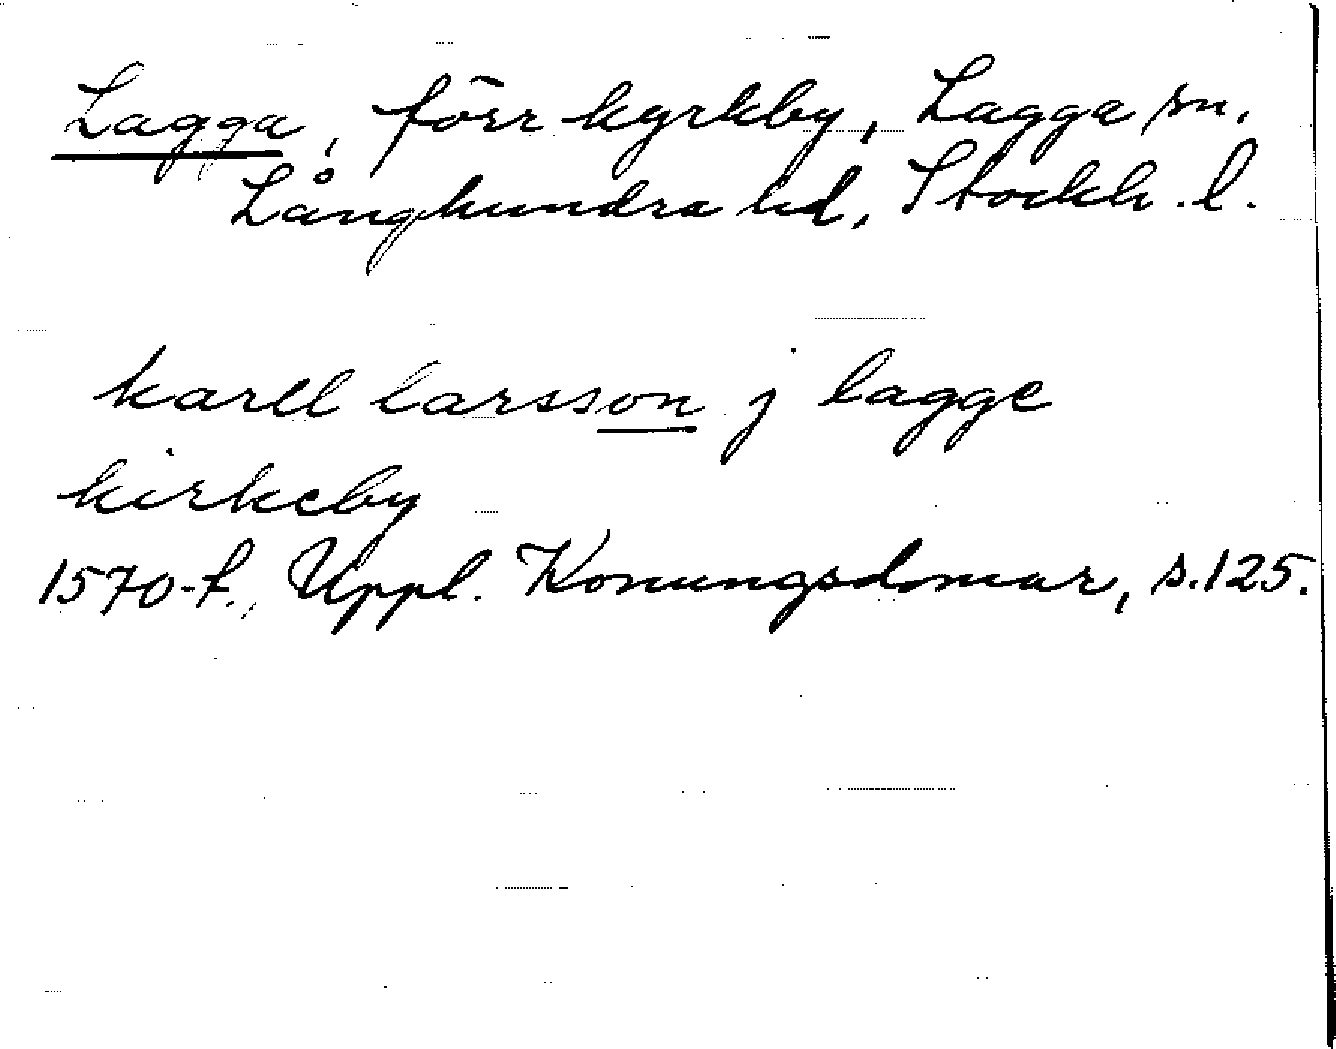 Lagga, förr kyrkby, Lagga sn.
Långhundra hd, Stockh. l.
karell larsson j lagge
kirkeby
1570-t., Uppl. Konungsdomar, s. 125.